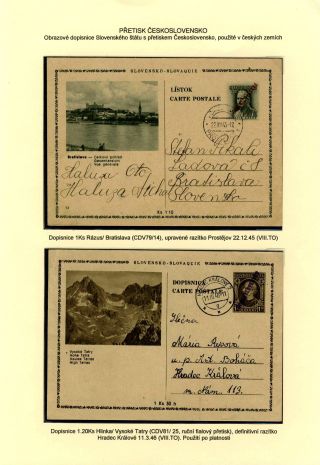 PŘETISK ČESKOSLOVENSKO
Obrazové dopisnice Slovenského štátu s přetiskem Československo, použité v českých zemích
SLOVENSKO-SLOVAQUIE
LÍSTOK
CARTE POSTALE
Štefan Pekala
Ľadová č 8
Bratislava
Slovensko
Haluza Oto
Haluza
Bratislava
Celkový pohľad
Ks 1·10
Dopisnice 1Ks Rázus/ Bratislava (CDV79/14), upravené razítko Prostějov 22.12.45 (VIII.TO)
SLOVENSKO-SLOVAQUIE
DOPISNICA
CARTE POSTALE
Slečna
Mária Rypsová
u p. Boháča
Hradec Králové
m. Nám. 113.
Vysoké Tatry
Hohe Tatra
Hautes Tatras
High Tatras
1 Ks 50 h
Dopisnice 1.20Ks Hlinka/ Vysoké Tatry (CDV81/ 25, ruční fialový přetisk), definitivní razítko
Hradec Králové 11.3.46 (VIII.TO). Použití po platnosti